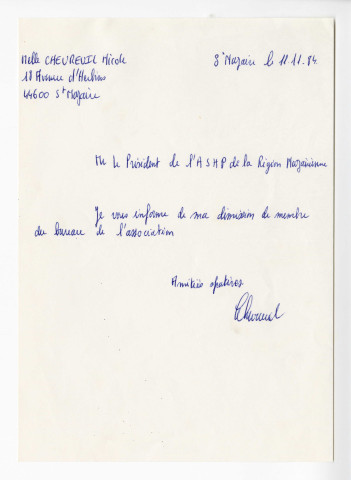 Melle CHEVREUIL Nicole
18 Avenue d'Herbins
44600 St Nazaire
St Nazaire le 11.11.84
Mr Le Président de l'A S H P de la Région Nazairienne
Je vous informe de ma démission de membre
du bureau de l'association
Amitiés